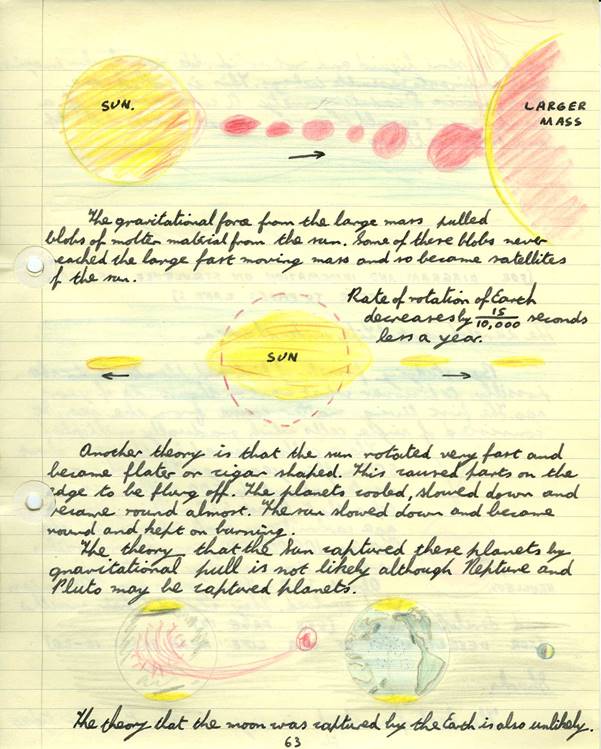 SUN.
LARGER
MASS
The gravitational force from the large mass pulled
blobs of molten material from the sun. Some of these blobs never
reached the large fast moving mass and so became satellites
of the sun.
Rate of rotation of Earth
decreases by 15/10,000 seconds
less a year.
SUN
Another theory is that the sun rotated very fast and
became flater or cigar shaped. This caused parts on the
edge to be flung off. The planets cooled, slowed down and
became round almost. The sun slowed down and became
round and kept on burning.
The theory that the Sun captured these planets by
gravitational pull is not likely although Neptune and
Pluto may be captured planets.
The theory that the moon was captured by the Earth is also unlikely.
63